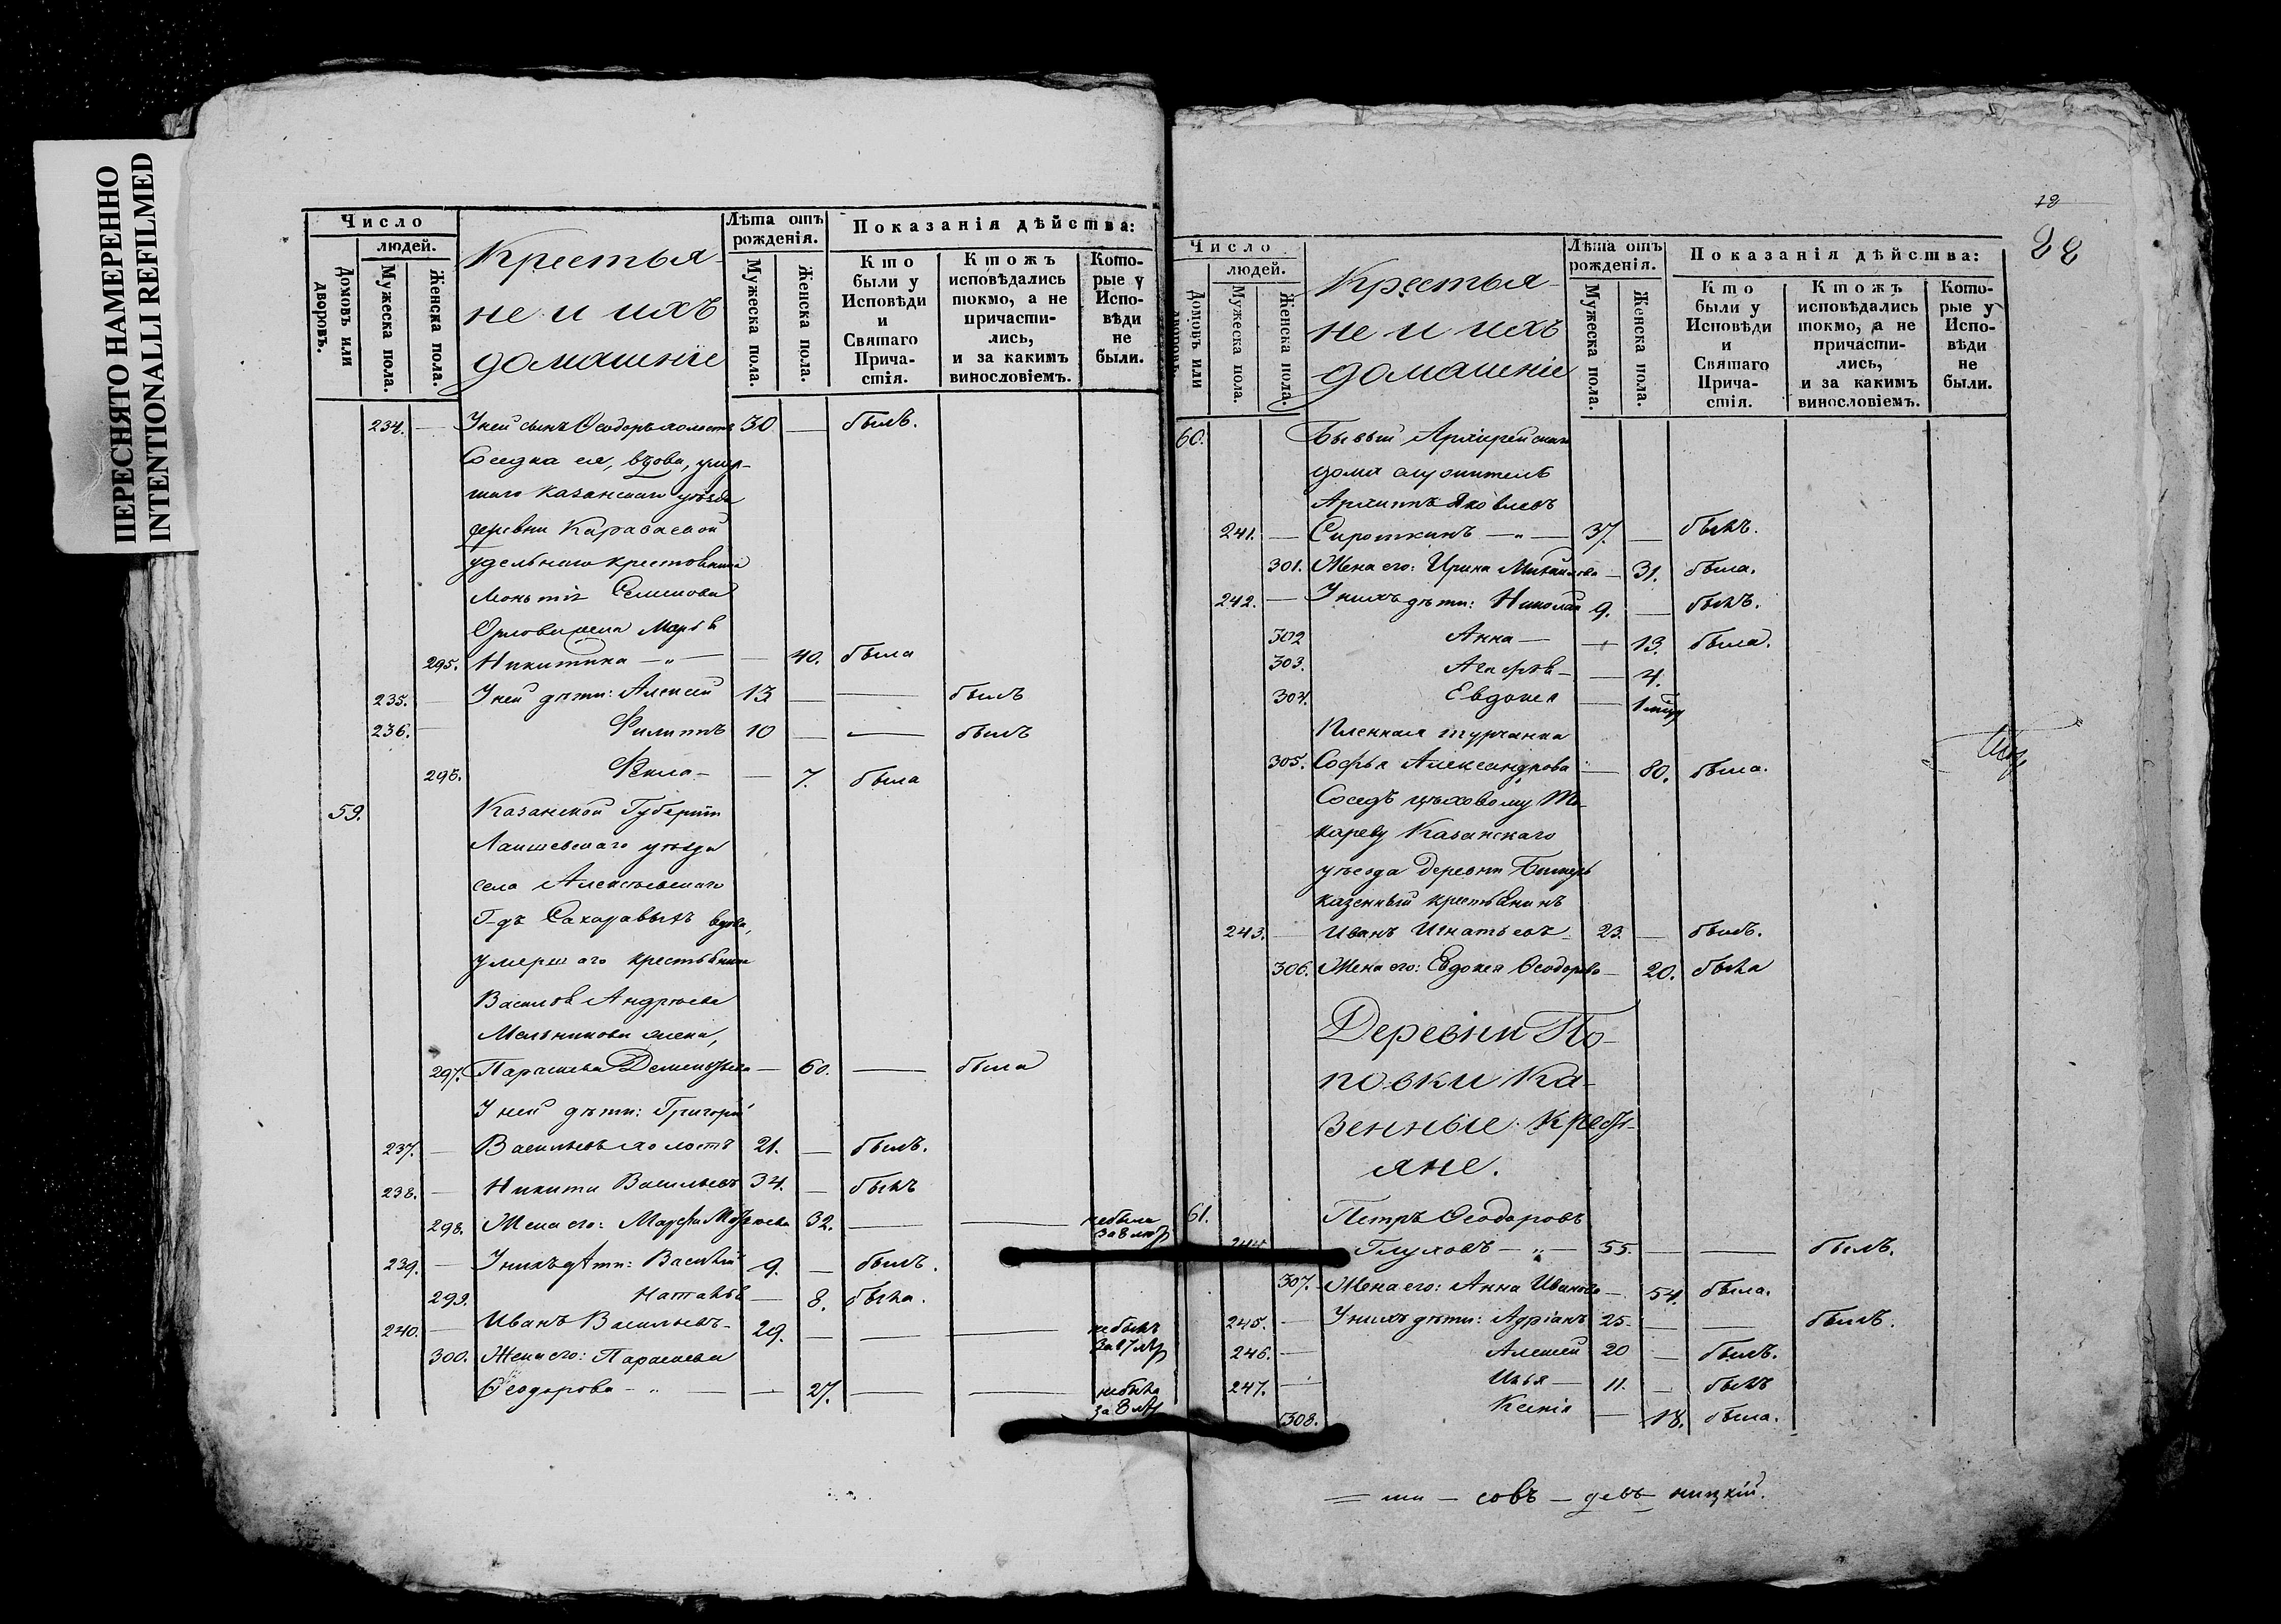 ПЕРЕСНЯТО НАМЕРЕННО
INTENTIONALLI REFILMED
Число
людей.
Домовъ или дворовъ.
Мужеска пола.
Женска пола.
Крестья-
не и ихъ
домашніе
Лѣта отъ рожденія.
Мужеска пола.
Женска пола.
Показанія дѣйства:
Кто были у Исповѣди и Святаго Прича-стія.
Ктожъ исповѣдались токмо, а не причасти-лись, и за какимъ винословіемъ.
Кото-рые у Испо-вѣди не были.
234. — У ней сынъ Ѳеодоръ холостъ 30 — былъ.
Соседка ея, вдова, умер-
шаго Казанскаго уѣзда
деревни Караваевой
удельнаго крестьянина
Семенова
Орлова жена Марья
295. Никитина — „ — — 40. была
235. — У ней дѣти: Алексей 13 — — былъ
236. — Филиппъ 10 — — былъ
296. Фекла — — 7. была
59. Казанской Губерніи
Лаишевскаго уѣзда
села Алексѣевскаго
Г-дъ Сахаравыхъ вдова,
умершаго крестьянина
Василья Андреева
Мельникова жена,
297. Параскева Дементьева — 60. — была
У ней дѣти: Григорій
237. — Васильевъ холостъ 21. — былъ.
238. — Никита Васильевъ 34. — былъ
298. Жена его: Марфа 32. — — небыла
за 8 лѣтъ
239. — У нихъ дѣти: Василій 9. — былъ.
299. Наталья — 8. была.
240. — Иванъ Васильевъ — 29. — — — небылъ
за 7 лѣтъ
300. Жена его: Параскева
Ѳеодорова — „ — — 27. — — небыла
за 8 лѣтъ
12
28
Число
людей.
Домовъ или дворовъ.
Мужеска пола.
Женска пола.
Крестья-
не и ихъ
домашніе
Лѣта отъ рожденія.
Мужеска пола.
Женска пола.
Показанія дѣйства:
Кто были у Исповѣди и Святаго Прича-стія.
Ктожъ исповѣдались токмо, а не причасти-лись, и за какимъ винословіемъ.
Кото-рые у Испо-вѣди не были.
60. Бывый Архирейскаго
дома служитель
Архиппъ Яковлевъ
241. — Сироткинъ — „ — 37. — былъ.
301. Жена его: Ирина Михайлова — 31. была.
242. — У нихъ дѣти: Николай 9. — былъ.
302 Анна — — 13. была.
303. Агафья — — 4.
304. Евдокея — 1
Пленная турчанка
305. Софья Александрова — 80. была.
Соседъ цѣховому Ма-
кареву Казанскаго
уѣезда деревни
казенный крестьянинъ
243. — Иванъ Игнатьевъ — 23. — былъ.
306. Жена его: Евдокея Ѳеодорова — 20. была
Деревни По-
повки Ка-
зенные крестъ-
яне.
61. Петръ Ѳеодоровъ
244. Глуховъ — „ — 55. — — былъ.
307. Жена его: Анна Иванова — 54. была.
245. — У нихъ дѣти: Адріанъ 25 — — былъ.
246. — Алексей 20 — былъ.
247. — Илья — 11. — былъ
308. Ксенія — 18. была.
— совъ — девъ — ницкій.